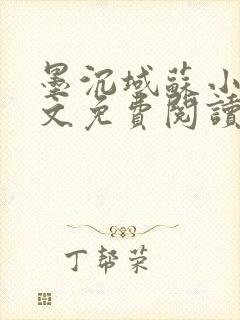 墨沉域蘇小
文免費閱讀
丁帮荣